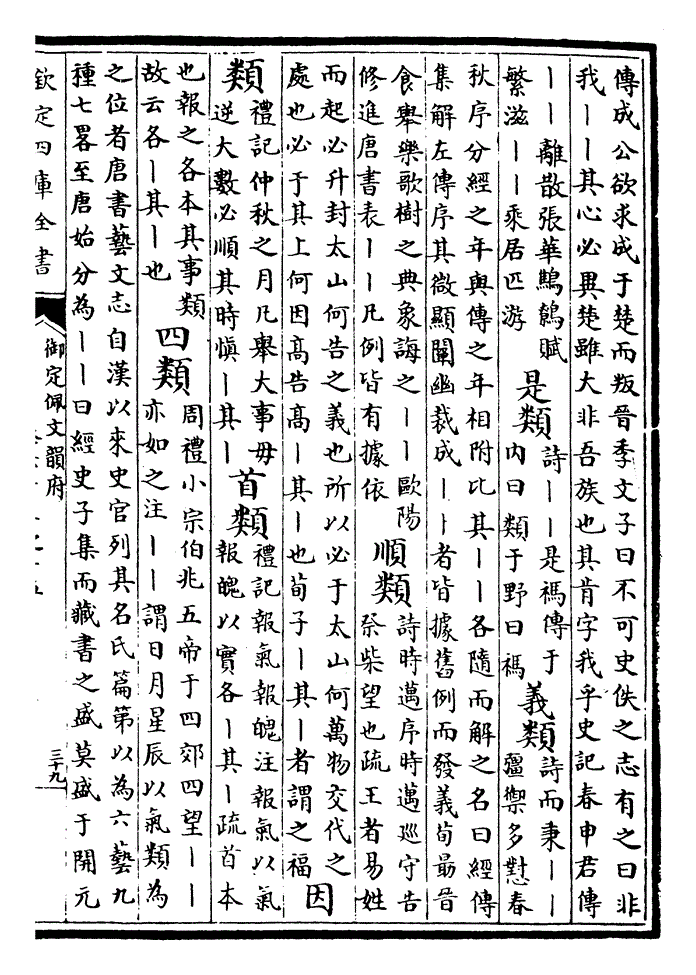 傳成公欲求成于楚而叛晉季文子曰不可史佚之志有之曰非
我丨丨其心必異楚雖大非吾族也其肯字我乎史記春申君傳
丨丨離散張華鷦鷯賦
繁滋丨丨乘居匹游
是類
詩丨丨是禡傳于
內曰類于野曰禡
義類
詩而秉丨丨
彊禦多懟春
秋序分經之年與傳之年相附比其丨丨各隨而解之名曰經傳
集解左傳序其微顯闡幽裁成丨丨者皆據舊例而發義荀朂晉
食舉樂歌樹之典象誨之丨丨歐陽
修進唐書表丨丨凡例皆有據依
順類
詩時邁序時邁巡守告
祭柴望也疏王者易姓
而起必升封太山何告之義也所以必于太山何萬物交代之
處也必于其上何因高告高丨其丨也荀子丨其丨者謂之福
因
類
禮記仲秋之月凡舉大事毋
逆大數必順其時慎丨其丨
首類
禮記報氣報魄注報氣以氣
報魄以實各丨其丨疏首本
也報之各本其事類
故云各丨其丨也
四類
周禮小宗伯兆五帝于四郊四望丨丨
亦如之注丨丨謂日月星辰以氣類為
之位者唐書藝文志自漢以來史官列其名氏篇第以為六藝九
種七畧至唐始分為丨丨曰經史子集而藏書之盛莫盛于開元
欽定四庫全書
御定佩文韻府
三十九